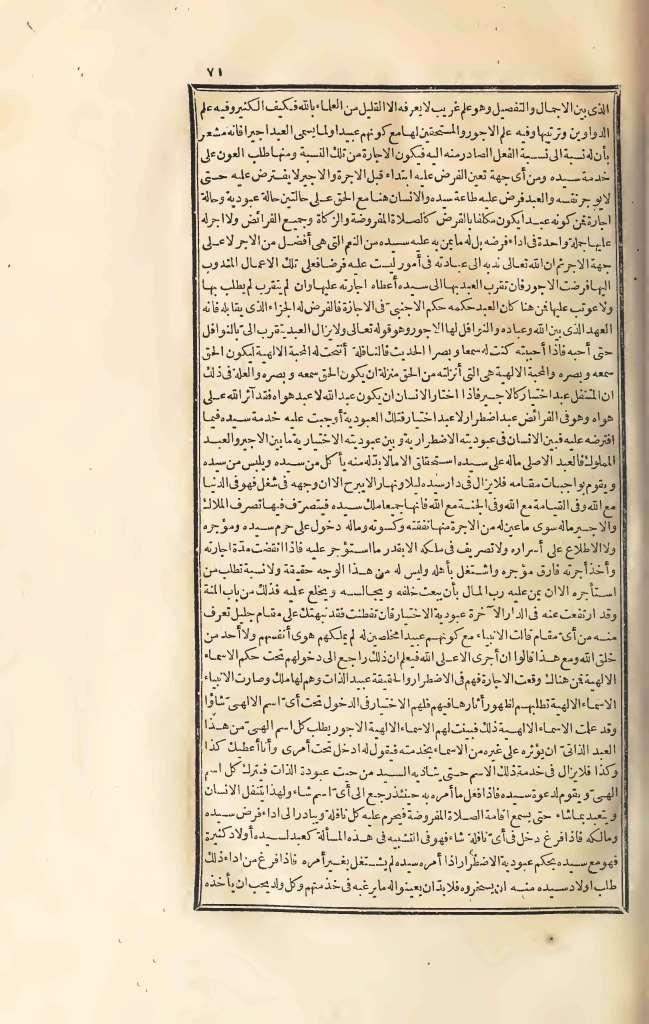 ٧١
الذى بين الاجمال والتفصيل وهو علم غريب لا يعرفه الا القليل من العلماء بالله فكيف الكثير وفيه علم
الدواوين وترتيبها وفيه علم الاجور والمستحقين لها مع كونهم عبيدا ولما يسمى العبد اجيرا فانه مشعر
بأن له نسبة الى نسبة الفعل الصادر منه اليه فيكون الاجارة من تلك النسبة ومنها طلب العون على
خدمة سيده ومن أى جهة تعين الفرض عليه ابتداء قبل الاجرة والاجير لا يفترض عليه حتى
لا يوجر نفسه والعبد فرض عليه طاعة سيده والانسان هنا مع الحق على حالتين حالة عبودية وحالة
اجارة فمن كونه عبدا يكون مكلفا بالفرض كالصلاة المفروضة والزكاة وجميع الفرائض ولا اجر له
عليها جملة واحدة فى اداء فرضه بل له ما يمن به عليه سيده من النعم التى هى أفضل من الاجر لا على
جهة الاجر ثم ان الله تعالى ندبه الى عبادته فى أمور ليست عليه فرضا فعلى تلك الاعمال المندوب
اليها فرضت الاجور فان تقرب العبد بها الى سيده أعطاه اجارته عليها وان لم يتقرب لم يطلب بها
ولا عوتب عليها فمن هنا كان العبد حكمه حكم الاجنبى فى الاجازة فالفرض له الجزاء الذى يقابله فانه
العهد الذى بين الله وعباده والنوافل لها الاجور وهو قوله تعالى ولا يزال العبد يتقرب الى بالنوافل
حتى أحبه فاذا أحببته كنت له سمعا وبصرا الحديث فالنافلة أنتجت له المحبة الالهية ليكون الحق
سمعه وبصره والمحبة الالهية هى التى أنزلته من الحق منزلة ان يكون الحق سمعه وبصره والعلة فى ذلك
ان المتنفل عبد اختيار كالاجير فاذا اختار الانسان ان يكون عبد الله لا عبد هواه فقد آثر الله على
هواه وهو فى الفرائض عبد اضطرار لا عبد اختيار فتلك العبودية أوجبت عليه خدمة سيده فيما
افترضه عليه فبين الانسان فى عبوديته الاضطرارية وبين عبوديته الاختيارية ما بين الاجير والعبد
المملوك فالعبد الاصلى ماله على سيده استحقاق الا ما لابد له منه يأكل من سيده ويلبس من سيده
ويقوم بواجبات مقامه فلا يزال فى دار سيده ليلا ونهارا لا يبرح الا ان وجهه فى شغل فهو فى الدنيا
مع الله وفى القيامة مع الله وفى الجنة مع الله فانها جميعها ملك سيده فيتصرف فيها تصرف الملاك
والاجير ماله سوى ما عين له من الاجرة منها نفقته وكسوته وماله دخول على حرم سيده ومؤجره
ولا الاطلاع على أسراره ولا تصريف فى ملكه الا بقدر ما استؤجر عليه فاذا انقضت مدة اجارته
وأخذ أجرته فارق مؤجره واشتغل بأهله وليس له من هذا الوجه حقيقة ولا نسبة تطلب من
استأجره الا ان يمن عليه رب المال بأن يبعث خلفه ويجالسه ويخلع عليه فذلك من باب المنة
وقد ارتفعت عنه فى الدار الآخرة عبودية الاختيار فان تفطنت فقد نبهتك على مقام جليل تعرف
منه من أى مقام قالت الانبياء مع كونهم عبيدا مخلصين له لم يملكهم هوى أنفسهم ولا أحد من
خلق الله ومع هذا قالوا ان أجرى الا على الله فيعلم ان ذلك راجع الى دخولهم تحت حكم الاسماء
الالهية فمن هناك وقعت الاجارة فهم فى الاضطرار والحقيقة عبيد الذات وهم لها ملك وصارت الانبياء
الاسماء الالهية تطلبهم لظهور آثارها فيهم فلهم الاختيار فى الدخول تحت أى اسم الالهى شاؤا
وقد علمت الاسماء الالهية ذلك فبينت لهم الاسماء الالهية الاجور يطلب كل اسم الهى من هذا
العبد الذاتى ان يؤثره على غيره من الاسماء بخدمته فيقول له ادخل تحت أمرى وأنا أعطيك كذا
وكذا فلا يزال فى خدمة ذلك الاسم حتى يناديه السيد من حيث عبودة الذات فيترك كل اسم
الهى ويقوم لدعوة سيده فاذا فعل ما أمره به حينئذ رجع الى أى اسم شاء ولهذا يتنفل الانسان
ويتعبد بما شاء حتى يسمع اقامة الصلاة المفروضة فيحرم عليه كل نافلة ويبادر الى اداء فرض سيده
ومالكه فاذا فرغ دخل فى أى نافلة شاء فهو فى التشبيه فى هذه المسألة كعبد لسيده أولاد كثيرة
فهو مع سيده بحكم عبودية الاضطرار اذا أمره سيده لم يشتغل بغير أمره فاذا فرغ من اداء ذلك
طلب اولاد سيده منه ان يسخروه فلابد ان يعينوا له ما يرغبه فى خدمتهم وكل ولد يحب ان يأخذه